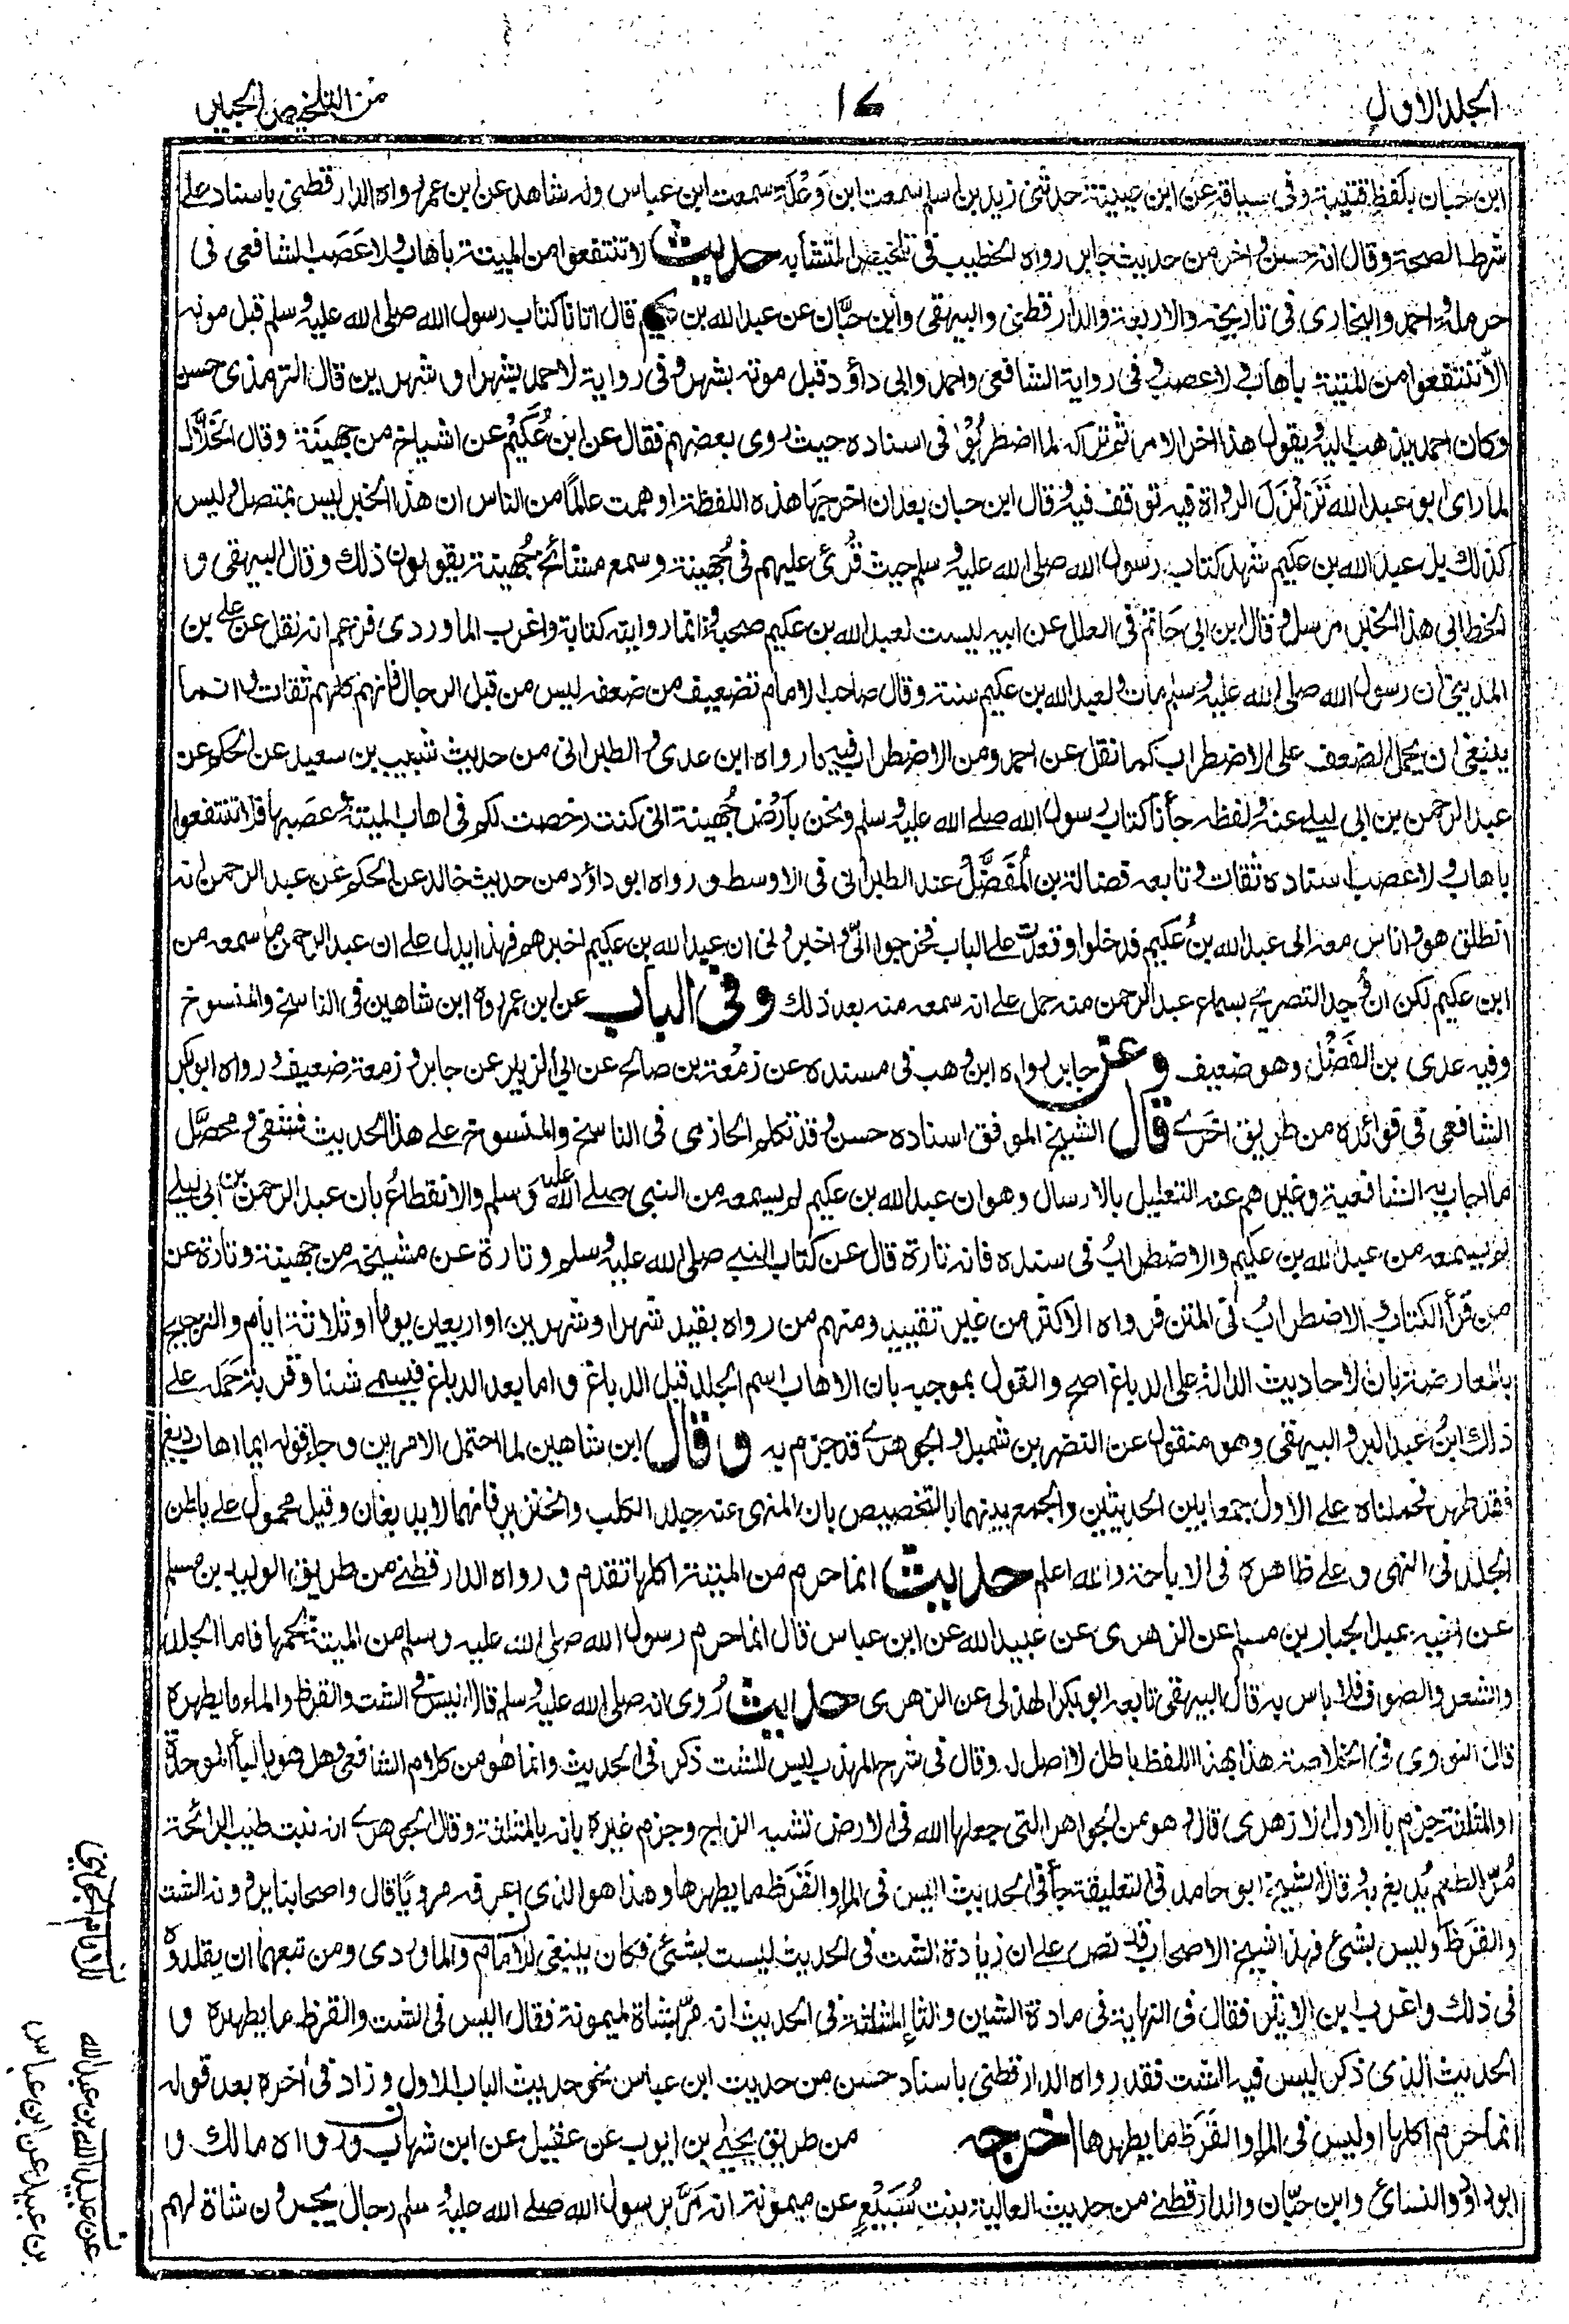 الجلد الاول
١٧
من التلخيص الحبير
ابن حبان بلفظ قتيبة وفي سياقه عن ابن عيينة حدثني زيد بن اسلم سمعت ابن وعلة سمعت ابن عباس وله شاهد عن ابن عمر رواه الدارقطني باسناد على
شرط الصحة وقال انه حسن واخر من حديث جابر رواه الخطيب في تلخيص المتشابه حديث لا تنتفعوا من الميتة بأهاب ولا عَصَب الشافعي في
حرملة واحمد والبخاري في تاريخه والاربعة والدارقطني والبيهقي وابن حبَّان عن عبد الله بن عكيم قال اتانا كتاب رسول الله صلى الله عليه وسلم قبل موته
الا تنتفعوا من الميتة بأهاب ولا عصب وفي رواية الشافعي واحمد وابي داؤد قبل موته بشهر وفي رواية لاحمد بشهر او شهرين قال الترمذي حسن
وكان احمد يذهب اليه ويقول هذا اخر الامر ثم تركه لما اضطربُوْا في اسناده حيث روى بعضهم فقال عن ابن عُكَيْم عن اشياخ من جهينَة وقال الخلَّال
لما راى ابو عبد الله تَزَلْزُلَ الرواة فيه توقف فيه وقال ابن حبان بعد ان اخرجها هذه اللفظة اوهمت عالمًا من الناس ان هذا الخبر ليس بمتصل وليس
كذلك بل عبد الله بن عكيم شهد كتاب رسول الله صلى الله عليه وسلم حيث قُرئ عليهم في جُهينة وسمع مشائخ جُهينة يقولون ذلك وقال البيهقي و
الخطابي هذا الخبر مرسل وقال ابن ابي حَاتم في العلل عن ابيه ليست لعبد الله بن عكيم صحبة وانما روايته كتابة واغرب الماوردي فزعم انه نقل عن علي بن
المديني ان رسول الله صلى الله عليه وسلم مات ولعبد الله بن عكيم سنة وقال صاحب الامام تضعيف من ضعفه ليس من قبل الرجال فانهم كلهم ثقات وانما
ينبغي ان يحمل الضعف على الاضطراب كما نقل عن احمد ومن الاضطراب فيه ما رواه ابن عدي والطبراني من حديث شبيب بن سعيد عن الحكم عن
عبد الرحمن بن ابي ليلے عنه ولفظه جأنا كتاب رسول الله صلے الله عليه وسلم ونحن بأرض جُهينة اني كنت رخصت لكم في اهاب الميتة وعصبها فلا تنتفعوا
باهاب ولا عصب اسناده ثقات وتابعه فضالة بن المُفَضَّلْ عند الطبراني في الاوسط ورواه ابو داؤد من حديث خالد عن الحكم عن عبد الرحمن انه
انطلق هو واناس معه الى عبد الله بن عُكيم فدخلوا وقعدت على الباب فخرجوا الىّ واخبروني ان عبد الله بن عكيم اخبرهم فهذا يدل على ان عبد الرحمن ما سمعه من
ابن عكيم لكن ان وجد التصريح بسماع عبد الرحمن منه حمل على انه سمعه منه بعد ذلك وفي الباب عن ابن عمر رواه ابن شاهين في الناسخ والمنسوخ
وفيه عدي بن الفَضْل وهو ضعيف وعن جابر رواه ابن وهب في مسنده عن زمْعة بن صالح عن ابي الزبير عن جابر وزمعة ضعيف ورواه ابو بكر
الشافعي في فوائده من طريق اخرے قال الشيخ الموفق اسناده حسن وقد تكلم الحازمي في الناسخ والمنسوخ على هذا الحديث فشفى ومحصَّل
ما اجاب به الشافعية وغيرهم عنه التعليل بالارسال وهو ان عبد الله بن عكيم لم يسمعه من النبي صلے الله عليه وسلم والانقطاع بان عبد الرحمن بن ابي ليلے
لم يسمعه من عبد الله بن عكيم والاضطرابُ في سنده فانه تارة قال عن كتاب النبے صلى الله عليه وسلم وتارة عن مشيخة من جهينة وتارة عن
من قرأ الكتاب والاضطرابُ في المتن فرواه الاكثر من غير تقييد ومنهم من رواه بقيد شهر او شهرين او اربعين يوما او ثلاثة ايام والترجيح
بالمعارضة بان الاحاديث الدالة على الدباغ اصح والقول بموجبه بان الاهاب اسم الجلد قبل الدباغ واما بعد الدباغ فيسمى شنا وقربة حَمَله على
ذلك ابنُ عبد البر والبيهقي وهو منقول عن النضر بن شميل والجوهرے قد جزم به وقال ابن شاهين لما احتمل الامرين وجاء قوله ايما اهاب دبغ
فقد طهر فحملناه على الاول جمعا بين الحديثين والجمع بينهما بالتخصيص بان المنهى عنه جلد الكلب والخنزير فانهما لا يدبغان وقيل محمول على باطن
الجلد في النهى وعلى ظاهره في الاباحة والله اعلم حديث انما حرم من الميتة اكلها تقدم ورواه الدارقطنے من طريق الوليد بن مسلم
عن اخيه عبد الجبار بن مسلم عن الزهري عن عبيد الله عن ابن عباس قال انما حرم رسول الله صلى الله عليه وسلم من الميتة لحمها فاما الجلد
والشعر والصوف فلا باس به قال البيهقي تابعه ابو بكر الهذلي عن الزهري حديث رُوى انه صلى الله عليه وسلم قال اليس في الشث والقرظ والماء ما يطهره
قال النووي في الخلاصة هذا بهذا اللفظ باطل لا اصل له وقال في شرح المهذب ليس للشث ذكر في الحديث وانما هو من كلام الشافعي وهل هو بالبأ الموحدة
او المثلثة جزم بالاول الازهري قال وهو من الجواهر التي جعلها الله في الارض تشبه الزاج وجزم غيره بانه بالمثلثة وقال الجوهرے انه نبت طيب الرائحة
مُرّ الطعم يُدبغ به وقال الشيخ ابو حامد في التعليقة جأ في الحديث اليس في المأ والقَرَظ ما يطهرها وهذا هو الذي اعرفه مرويًا قال واصحابنا يروونه الشث
والقَرَظ وليس بشئ فهذا شيخ الاصحاب قد نص على ان زيادة الشث في الحديث ليست بشئ فكان ينبغي للامام والماوردي ومن تبعهما ان يقلدوه
في ذلك واغرب ابن الاثير فقال في النهاية في مادة الشين والثاء المثلثة في الحديث انه مرّ بشاة لميمونة فقال اليس في الشث والقرظ ما يطهره و
الحديث الذي ذكر ليس فيه الشث فقد رواه الدارقطني باسناد حسن من حديث ابن عباس نحو حديث الباب الاول وزاد في أخره بعد قوله
انما حرم اكلها اوليس في المأ والقَرَظ ما يطهرها اخرجه من طريق يحيے بن ايوب عن عقيل عن ابن شهاب ورواه مالك و
ابو داؤد والنسائي وابن حبّان والدارقطنے من حديث العالية بنت سُبَيْعٍ عن ميمونة انه مَرَّ برسول الله صلے الله عليه وسلم رجال يجرون شاة لهم
عن عبيد الله بن عبد الله
بن عبيد عن ابن عباس